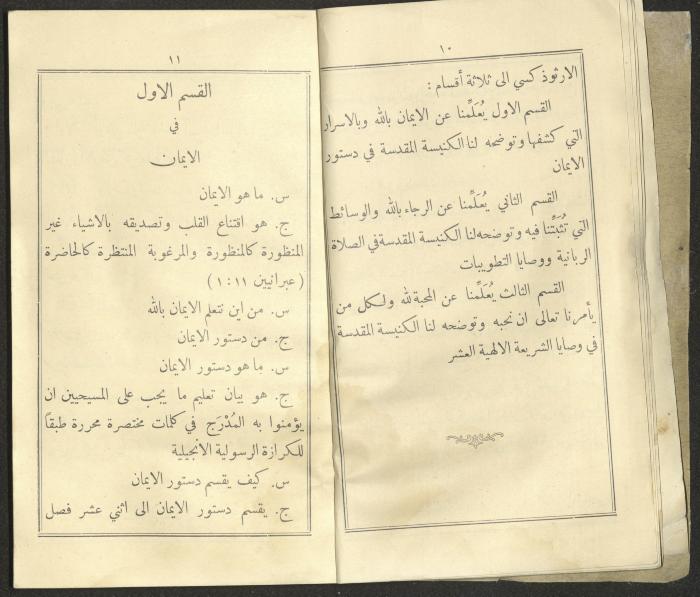 ١٠
الارثوذكسي الى ثلاثة أقسام :
القسم الاول يُعَلِّمنا عن الايمان بالله وبالاسرار
التي كشفها وتوضحه لنا الكنيسة المقدسة في دستور
الايمان
القسم الثاني يُعَلِّمنا عن الرجاء بالله والوسائط
التي تُثَبِّتُنا فيه وتوضحه لنا الكنيسة المقدسة في الصلاة
الربانية ووصايا التطويبات
القسم الثالث يُعَلِّمنا عن المحبة لله ولكل من
يأمرنا تعالى ان نحبه وتوضحه لنا الكنيسة المقدسة
في وصايا الشريعة الالهية العشر
١١
القسم الاول
في
الايمان
س. ما هو الايمان
ج. هو اقتناع القلب وتصديقه بالاشياء غير
المنظورة كالمنظورة والمرغوبة المنتظرة كالحاضرة
(عبرانيين ١١:١)
س. من اين نتعلم الايمان بالله
ج. من دستور الايمان
س. ما هو دستور الايمان
ج. هو بيان تعليم ما يجب على المسيحيين ان
يؤمنوا به المُدْرَج في كلمات مختصرة محررة طبقاً
للكرازة الرسولية الانجيلية
س. كيف يقسم دستور الايمان
ج. يقسم دستور الايمان الى اثني عشر فصل